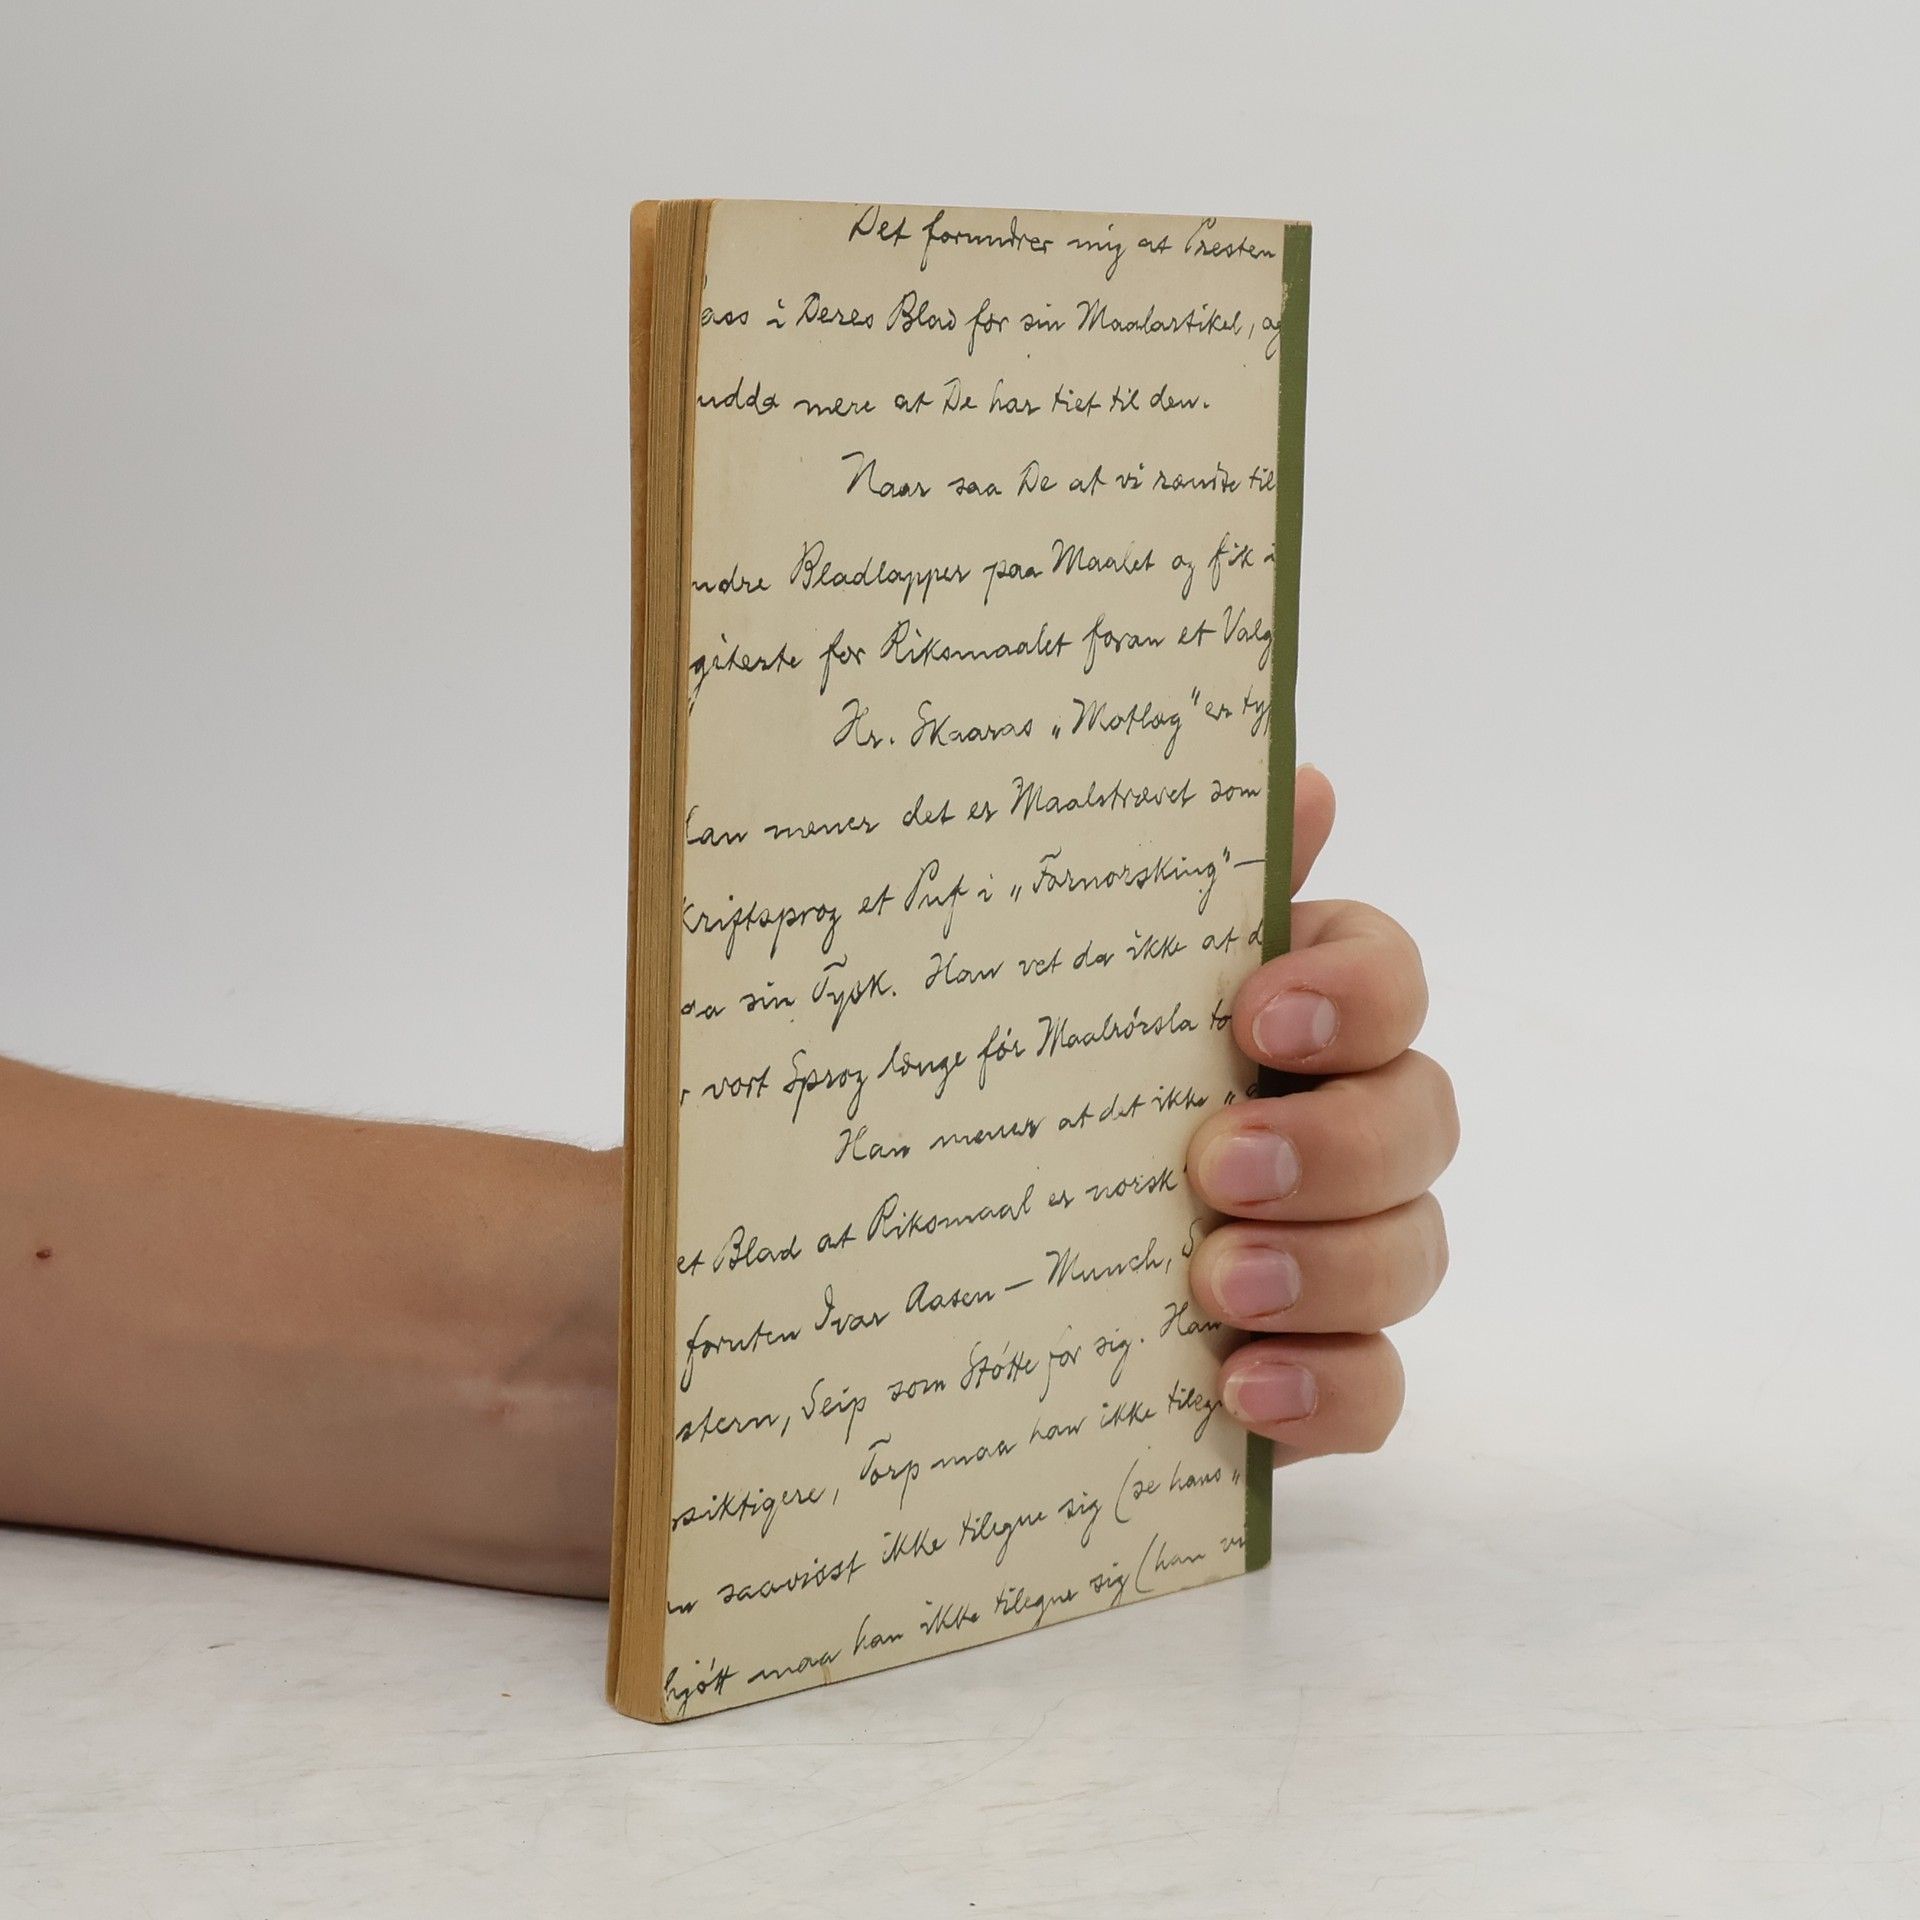 Det forundrer mig at Presten
ass i Deres Blad for sin Maalartikel, og
udda mere at De har tiet til den.
Naar saa De at vi rændte til
ndre Bladlapper paa Maalet og fik i
giterte for Riksmaalet foran et Valg
Hr. Skaaras „Motlæg" er typ
an mener det er Maalstrævet som
kriftsprog et Puf i „Fornorsking"—
aa sin Tysk. Han vet da ikke at d
vort Sprog længe før Maalrórsla to
Han mener at det ikke „
et Blad at Riksmaal er norsk"
foruten Ivar Aasen — Munch, S
stern, Seip som Stótte for sig. Han
rsiktigere, Torp maa han ikke tilegn
saavisst ikke tilegne sig (se hans „
hjótt maa han ikke tilegne sig (han vi